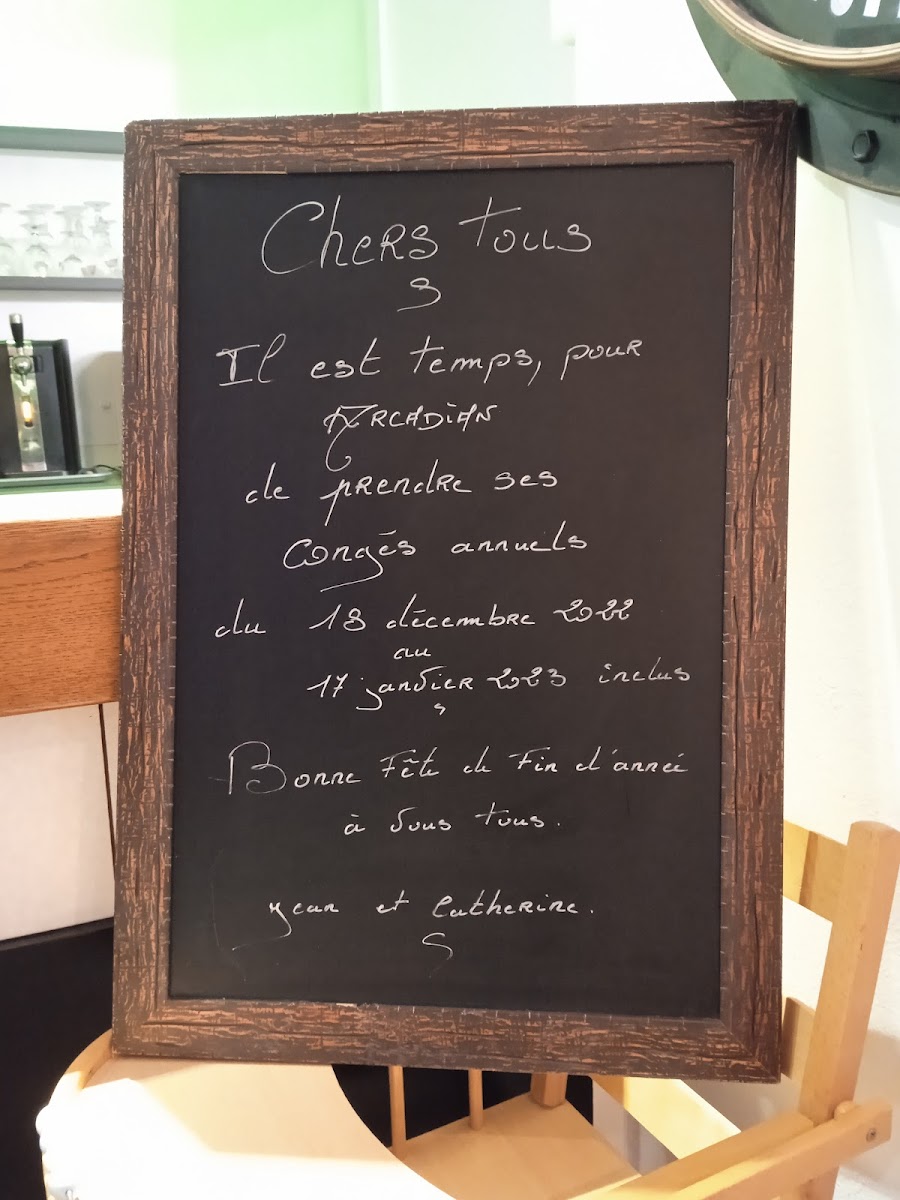 Chers tous
Il est temps, pour
ARCADIAN
de prendre ses
congés annuels
du 18 décembre 2022
au
17 janvier 2023 inclus
Bonne Fête de Fin d'année
à vous tous.
Jean et Catherine.